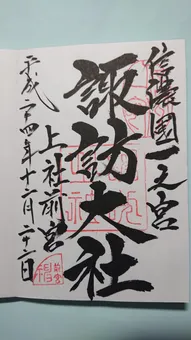 信濃國一之宮
諏訪大社
上社前宮
平成二十四年十二月二十二日